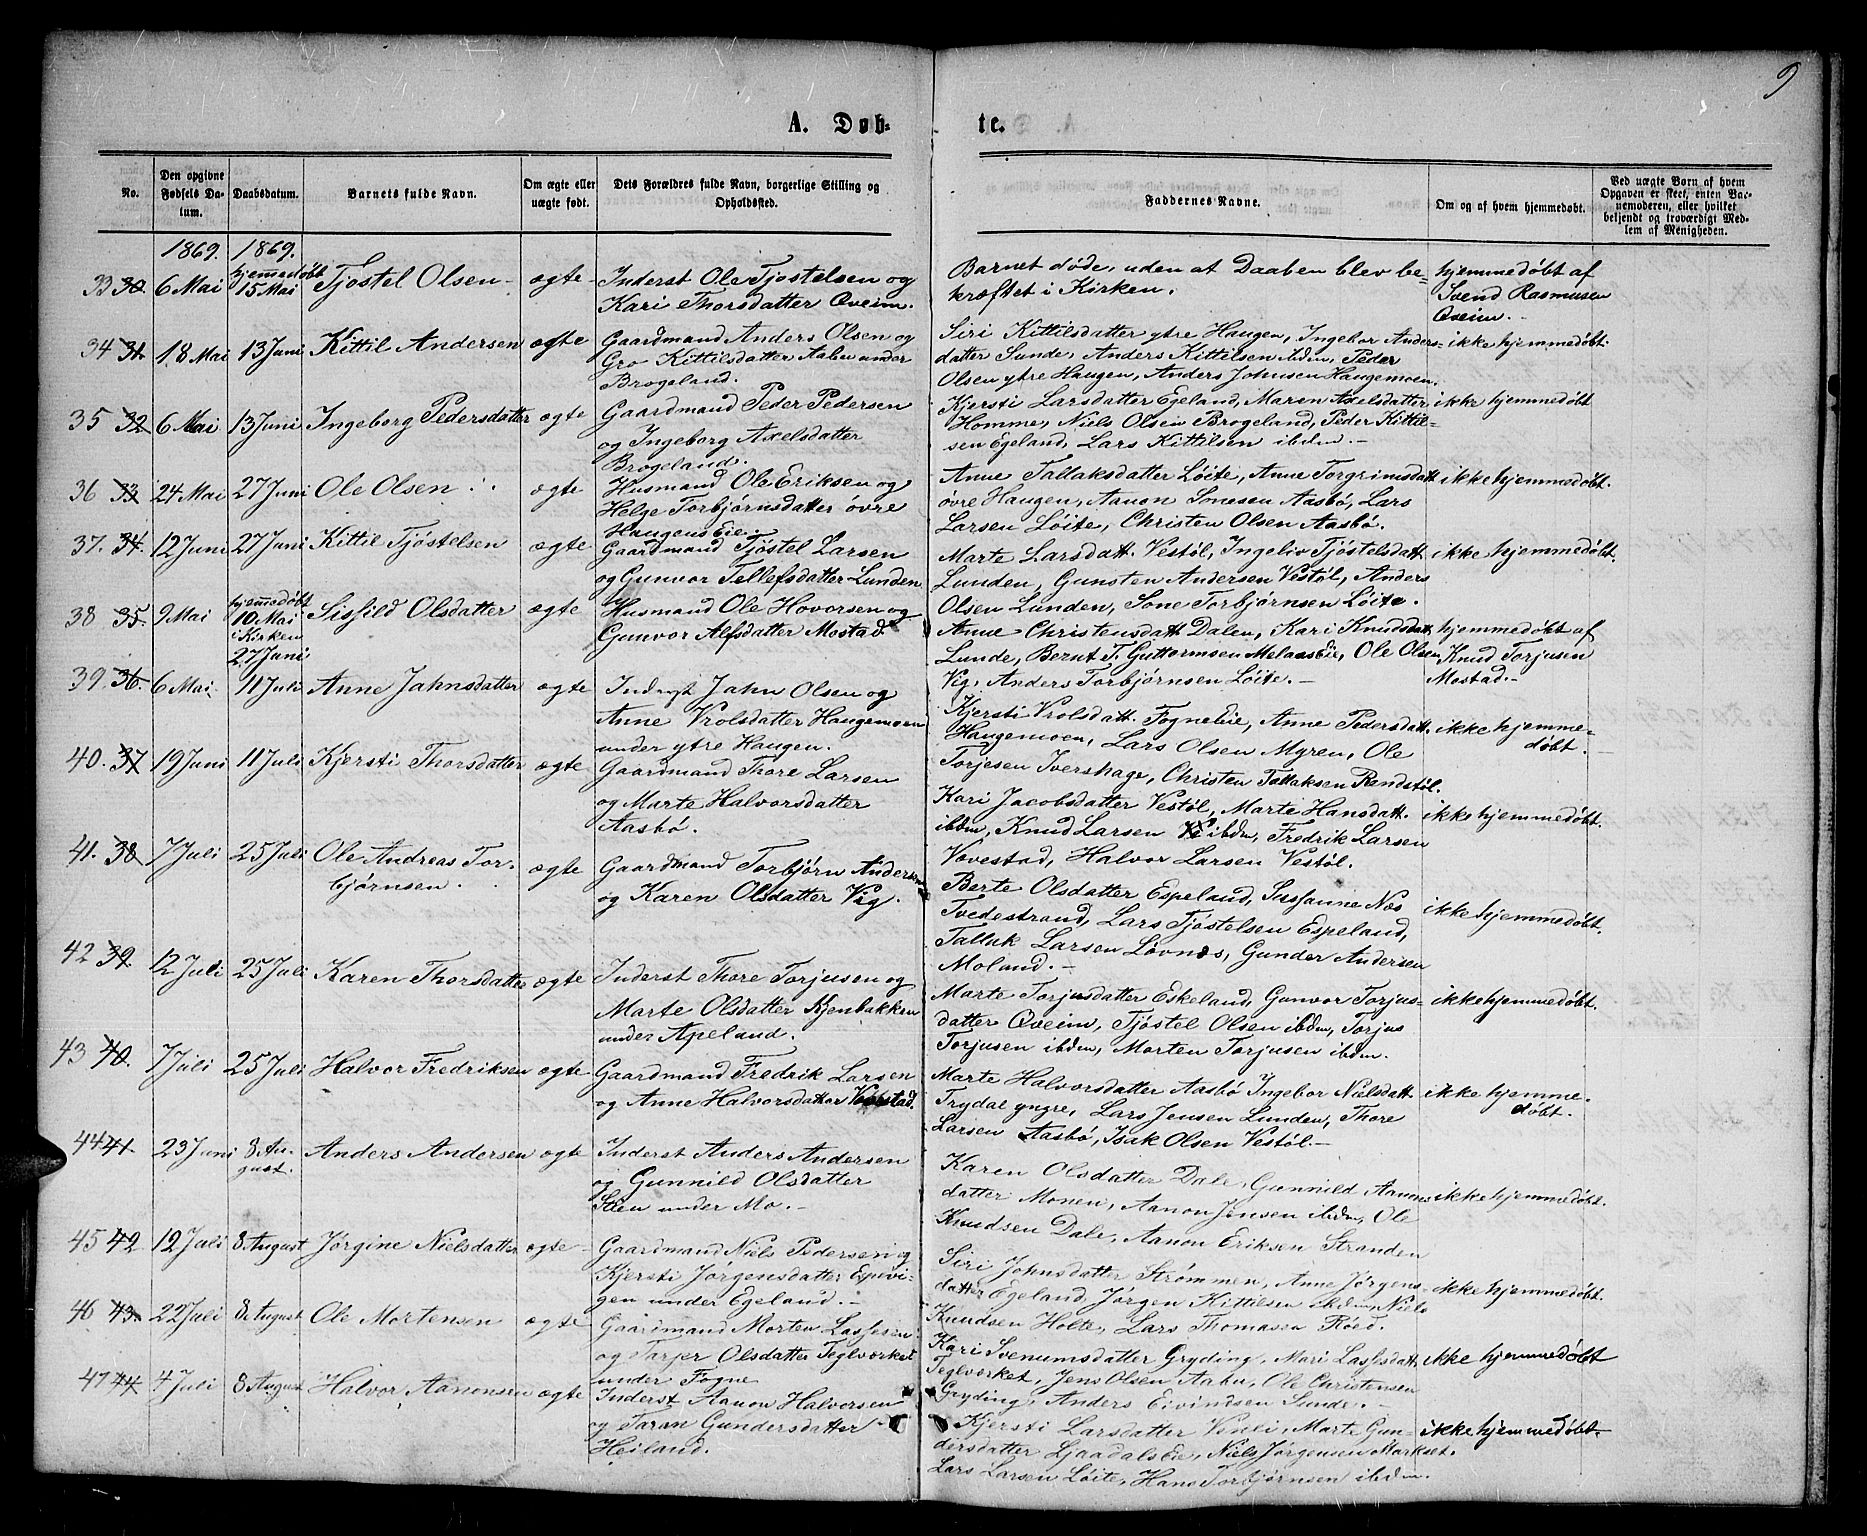 9
A. Døb-
te.
No.
Den opgivne Fødsels Da-
tum.
Daabsdatum.
Barnets fulde Navn.
Om ægte eller
uægte født.
Dets Forældres fulde Navn, borgerlige Stilling og
Opholdssted.
Faddernes Navne.
Om og af hvem hjemmedøbt.
Ved uægte Børn af hvem
Opgaven er skeet, enten Bar-
nemoderen, eller hvilket
bekjendt og troværdigt Med-
lem af Menigheden.
1869. 1869.
33 30. 6 Mai hjemmedøbt 15 Mai Tjøstel Olsen ægte Inderst Ole Tjøstelsen og
Kari Thorsdatter Qveim.
Barnet døde, uden at Daaben blev be-
kræftet i Kirken.
hjemmedøbt af
Svend Rasmusen
Qveim.
34 31. 18 Mai 13 Juni Kittil Andersen ægte Gaardmand Anders Olsen og
Gro Kittilsdatter Aabu under
Brogeland.
Siri Kittilsdatter ytre Haugen, Ingebor Anders-
datter Sunde, Anders Kittilsen ibdm, Peder
Olsen ytre Haugen, Anders Johnsen Haugemoen.
ikke hjemmedøbt.
35 32 6 Mai 13 Juni Ingeborg Pedersdatter ægte Gaardmand Peder Pedersen
og Ingeborg Axelsdatter
Brogeland.
Kjersti Larsdatter Egeland, Maren Axelsdatter
Homme, Niels Olsen Brogeland, Peder Kittil-
sen Egeland, Lars Kittilsen ibdm.
ikke hjemmedøbt
36 33 24 Mai 27 Juni Ole Olsen ægte Husmand Ole Eriksen og
Helge Torbjørnsdatter øvre
Haugens Eie.
Anne Tallaksdatter Løite, Anne Torgrimsdatt
øvre Haugen, Aanon Sonesen Aasbø, Lars
Larsen Løite, Christen Olsen Aasbø.
ikke hjemmedøbt.
37. 34. 12 Juni 27 Juni Kittil Tjøstelsen ægte Gaardmand Tjøstel Larsen
og Gunvor Tellefsdatter Lunden
Marte Larsdatt. Vestøl, Ingeliv Tjøstelsdatt
Lunden, Gunsten Andersen Vestøl, Anders
Olsen Lunden, Sone Torbjørnsen Løite.
ikke hjemmedøbt.
38 35. 9 Mai hjemmedøbt 10 Mai i Kirken 27 Juni Sissild Olsdatter ægte Husmand Ole Hovorsen og
Gunvor Alfsdatter Mostad
Anne Christensdatt Dalen, Kari Knudsdatt
Lunde, Bernt T. Guttormsen Melaas Eie, Ole Olsen
Vig, Anders Torbjørnsen Løite.
hjemmedøbt af
Knud Torjusen
Mostad.
39. 36. 6 Mai. 11 Juli Anne Jahnsdatter ægte Inderst Jahn Olsen og
Anne Vrolsdatter Haugemoen
under ytre Haugen.
Kjersti Vrolsdatt. Fogne Eie, Anne Pedersdatt
Haugemoen, Lars Olsen Myren, Ole
Torjesen Ivershage, Christen Tallaksen Randstøl.
ikke hjemme-
døbt.
40. 37 19 Juni 11 Juli Kjersti Thorsdatter ægte Gaardmand Thore Larsen
og Marte Halvorsdatter
Aasbø.
Kari Jacobsdatter Vestøl, Marte Hansdatt.
ibdm, Knud Larsen ibdm, Fredrik Larsen
Vovestad, Halvor Larsen Vestøl.
ikke hjemmedøbt.
41. 38 7 Juli 25 Juli Ole Andreas Tor-
bjørnsen. ægte Gaardmand Torbjørn Andersen
og Karen Olsdatter Vig.
Berte Olsdatter Espeland, Sussanne Næs
Tvedestrand, Lars Tjøstelsen Espeland,
Tallak Larsen Løvnæs, Gunder Andersen
Moland.
ikke hjemmedøbt.
42 39. 12 Juli 25 Juli Karen Thorsdatter ægte Inderst Thore Torjusen og
Marte Olsdatter Kjenbakken
under Apeland.
Marte Torjusdatter Eskeland, Gunvor Torjus-
datter Qveim, Tjøstel Olsen ibdm, Torjus
Torjusen ibdm, Morten Torjusen ibdm.
ikke hjemmedøbt.
43 40. 7 Juli 25 Juli Halvor Fredriksen ægte Gaardmand Fredrik Larsen
og Anne Halvorsdatter Vovestad.
Marte Halvorsdatter Aasbø Ingebor Nielsdatt.
Trydal yngre, Lars Jensen Lunden, Thore
Larsen Aasbø, Isak Olsen Vestøl.
ikke hjemme-
døbt.
44 41. 23 Juni 8 Au-
gust. Anders Andersen ægte Inderst Anders Andersen
og Gunnild Olsdatter
Stien under Mo.
Karen Olsdatter Dale, Gunnild Aanons
datter Monen, Aanon Jensen ibdm, Ole
Knudsen Dale, Aanon Eriksen Stranden
ikke hjemmedøbt.
45 42 12 Juli 8 August Jørgine Nielsdatter ægte Gaardmand Niels Pedersen og
Kjersti Jørgensdatter Espevi-
gen under Egeland.
Siri Johnsdatter Strømmen, Anne Jørgens-
datter Egeland, Jørgen Kittilsen ibdm, Niels
Knudsen Holte, Lars Thomasen Røed.
ikke hjemmedøbt.
46 43. 22 Juli 8 August Ole Mortensen ægte Gaardmand Morten Lassesen
og Tarjer Olsdatter Teglverket
under Fogne
Kari Svenumsdatter Gryding, Mari Lassesdatt
Teglverket, Jens Olsen Aabu, Ole Christensen
Gryding, Anders Eivindsen Sunde.
ikke hjemmedøbt
47 44 4 Juli 8 August Halvor Aanonsen ægte Inderst Aanon Halvorsen
og Taran Gundersdatter
Heiland.
Kjersti Larsdatter Vesli, Marte Gun-
dersdatter Ljaadals Eie, Niels Jørgensen Markset.
Lars Larsen Løite, Hans Torbjørnsen ibdm.
ikke hjemmedøbt.